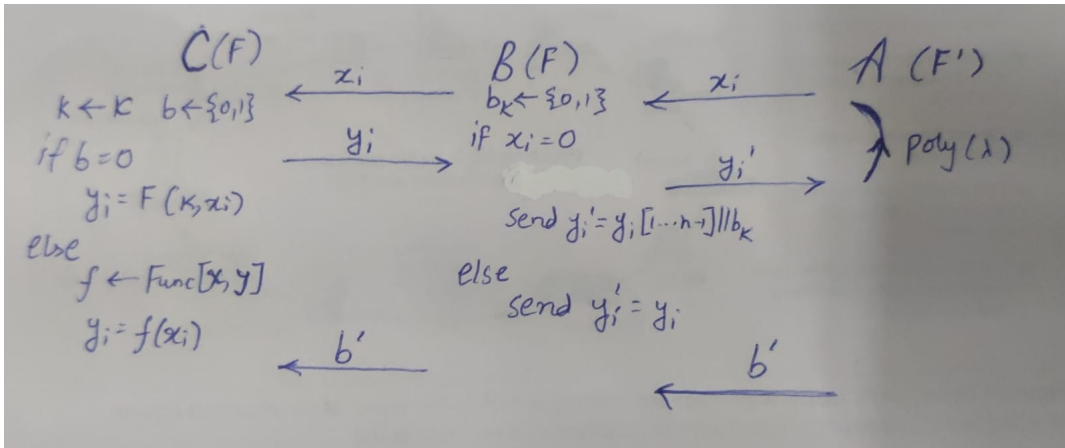 C(F)
k ← K b ← {0,1}
if b = 0
y_i = F(k, x_i)
else
f ← Func[X, Y]
y_i = f(x_i)
x_i
y_i
b'
B(F)
b_k ← {0,1}
if x_i = 0
send y_i' = y_i[1...n-1]||b_k
else
send y_i' = y_i
x_i
y_i'
b'
A (F')
poly(λ)